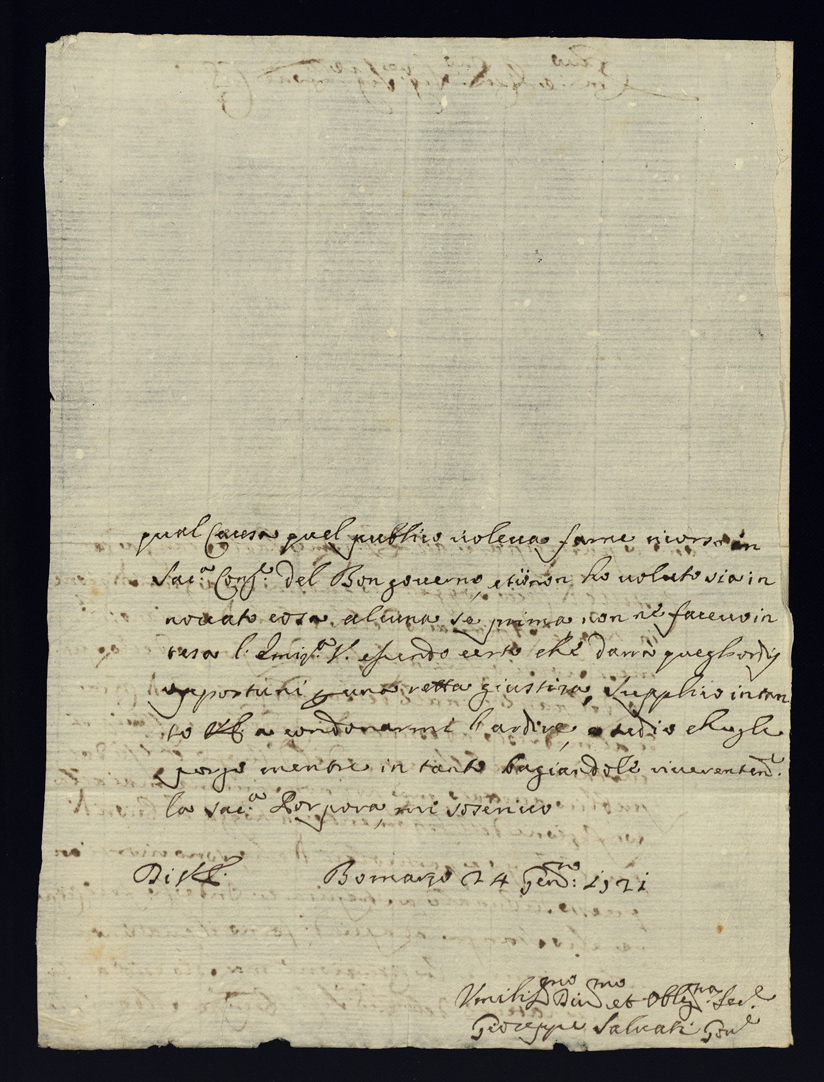 qual Causa quel publico voleva farne ricorso in
Sac.ª Cong.e del Bongoverno, et io non ho voluto sia in
novato cosa alcuna se prima non né facevo in
tesa l' Em.ª V. essendo certo ché darrà quegl'ordij
opportuni una retta giustizia, Supplico intan
to VE. a condonarmi l'ardire, tedio che gle
porgo mentre in tanto bagiandolé riverentem.e
la Sac.ª Porpora, mi soscrivo
Di VE. Bomarzo 24 Genn.ro 1721
Umiliss.mo Div.mo et Oblig.mo Ser.e
Gioseppe Salvati Gov.e